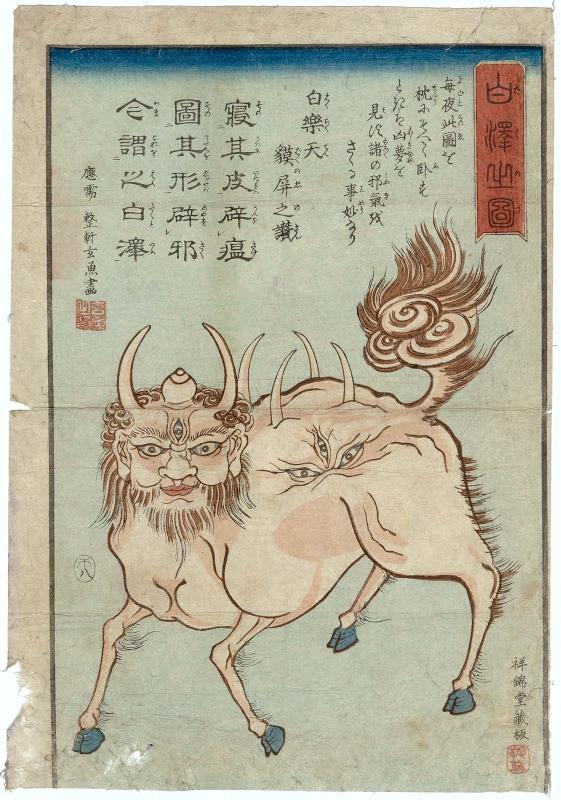 白澤之圖
毎夜此圖を
枕にそへて臥とき
ときは凶夢を
見ず諸の邪氣を
さくる事妙なり
白樂天
貘屏之讃
寝其皮辟瘟
圖其形辟邪
今謂之白澤
應需 整軒玄魚畫
祥錦堂藏板